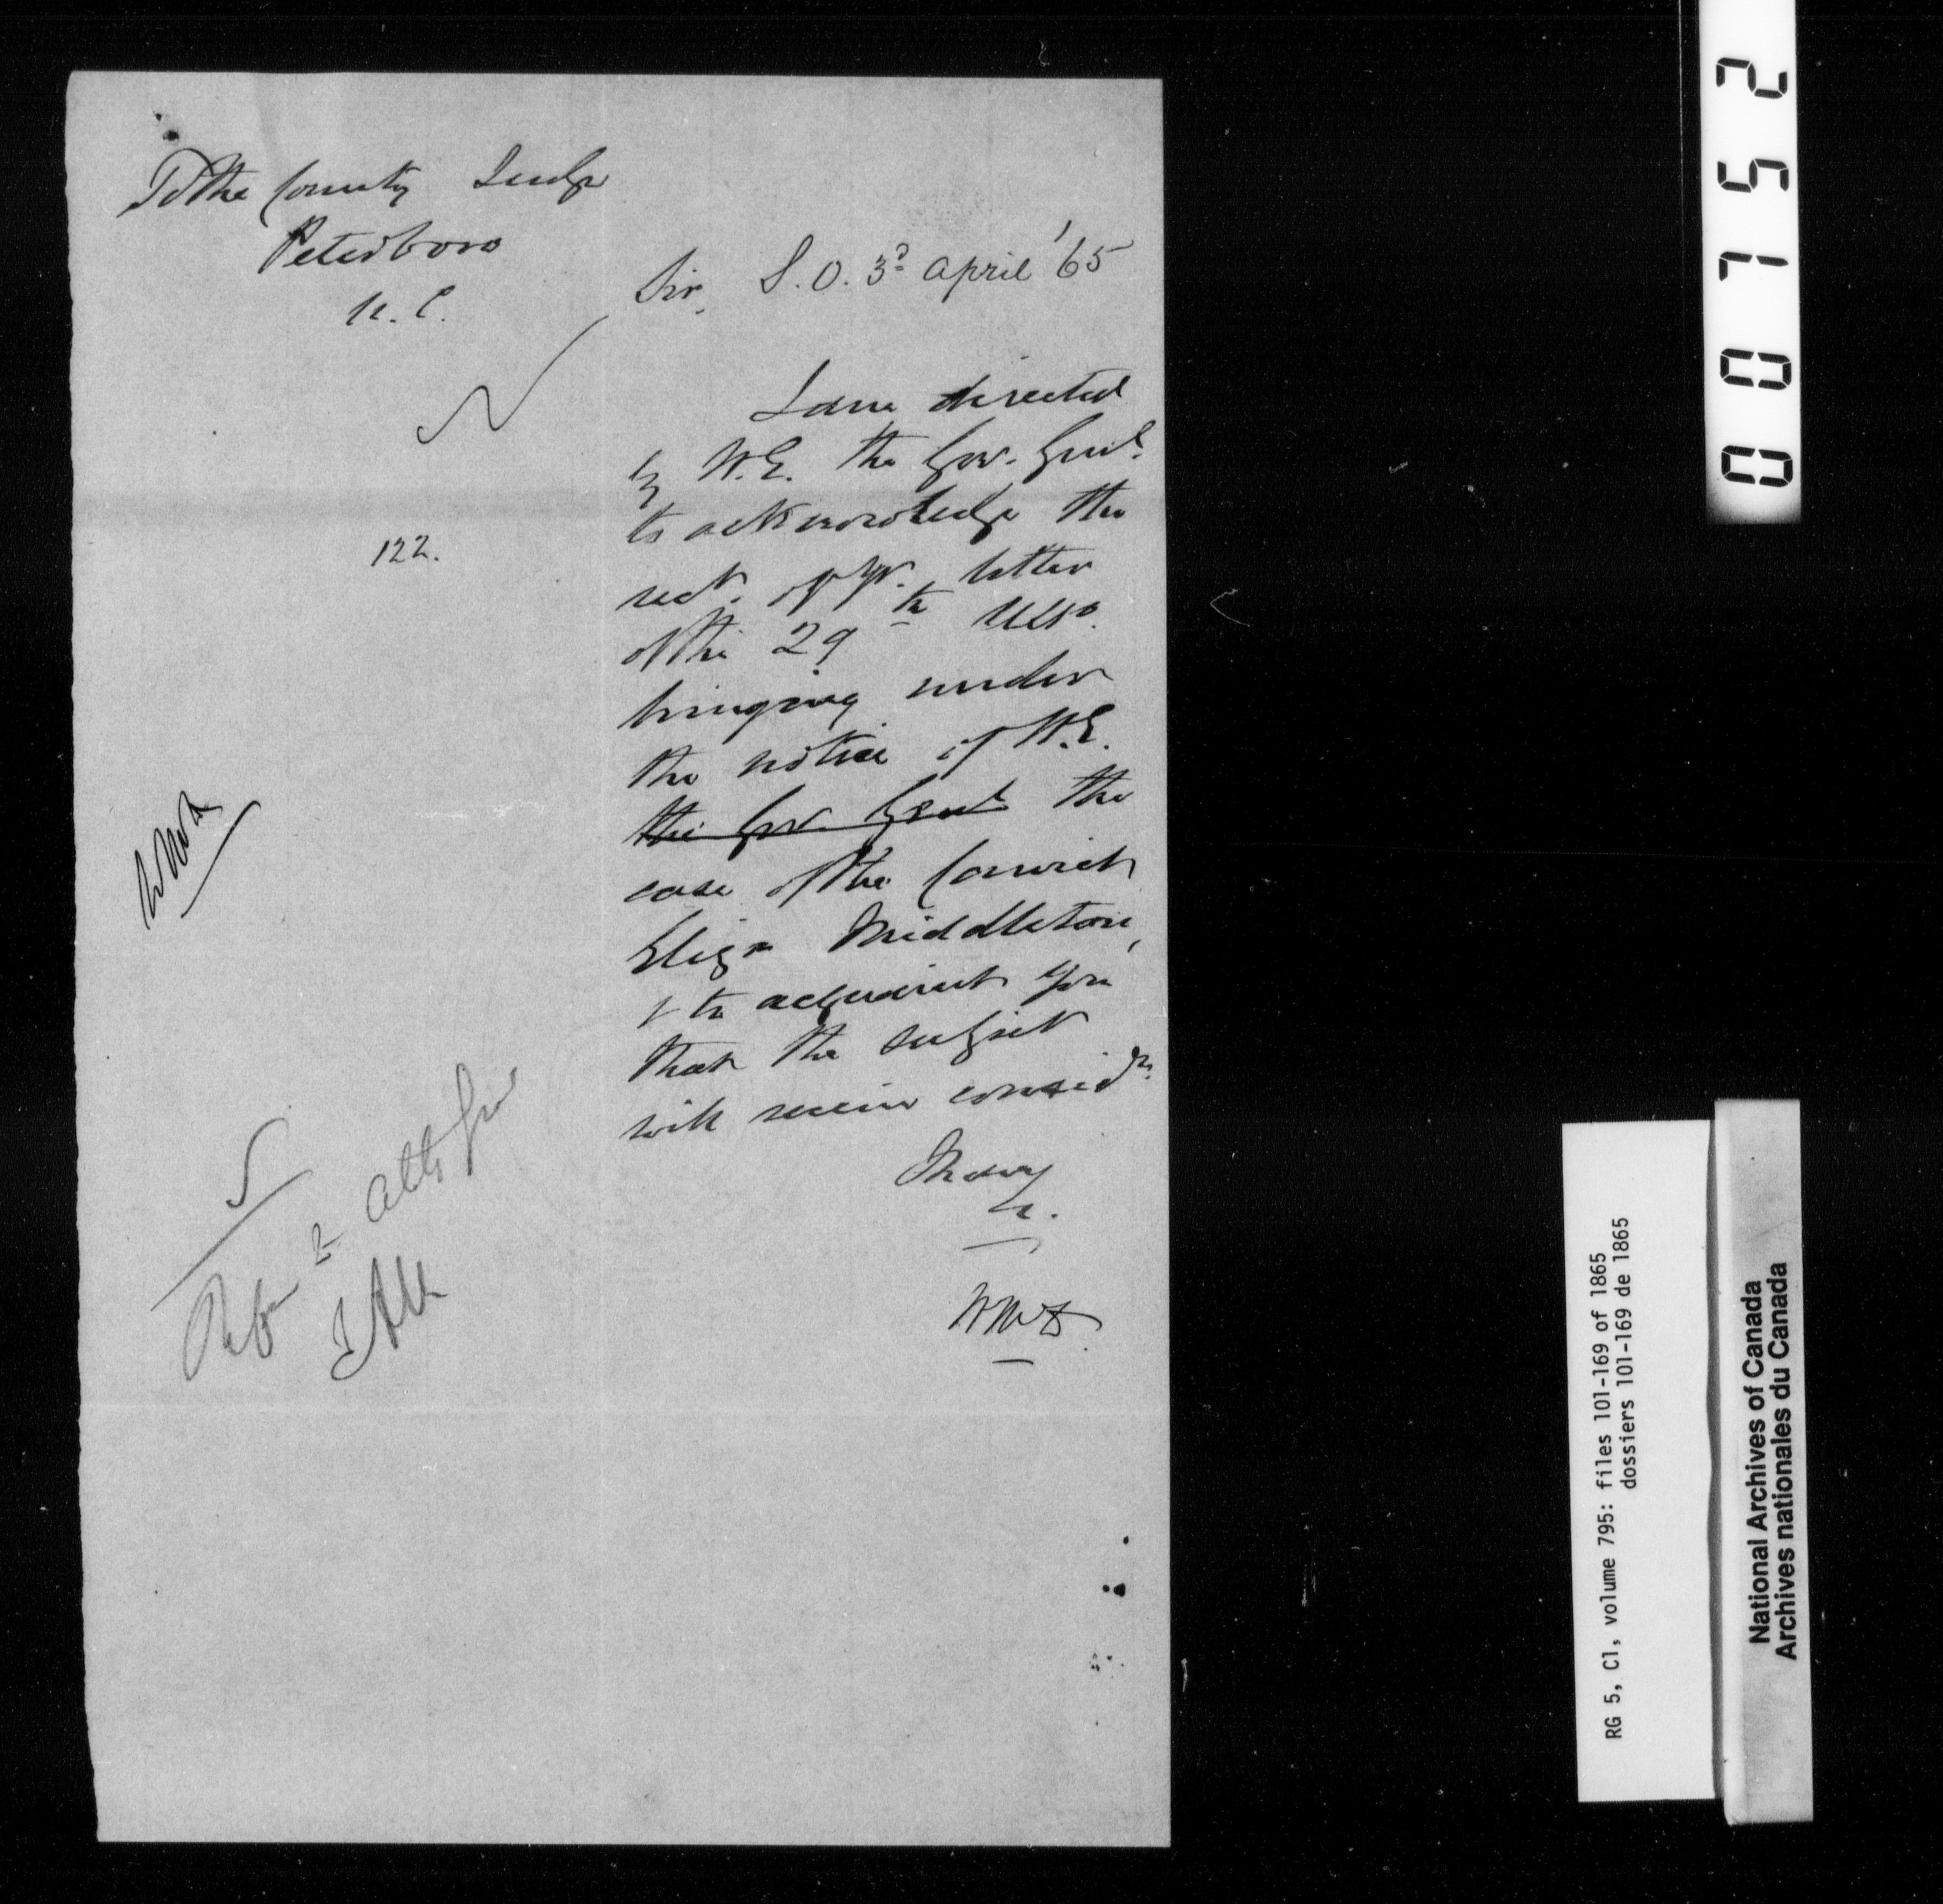 To the County Judge
Peterboro
U. C.
S. O. 3d April '65
Sir,
122.
I am directed
by H.E. the Gov. Genl.
to acknowledge the
rect. of yr. letter
of the 29th Ulto.
bringing under
the notice of H.E.
the Gov. Genl the
case of the Convict
Eliza Middleton,
& to acquaint you
that the subject
will receive considn.
I have
&c.
WMD
Refer to Atty Gen
JAM
00752
RG 5, C1, volume 795: files 101-169 of 1865
dossiers 101-169 de 1865
National Archives of Canada
Archives nationales du Canada